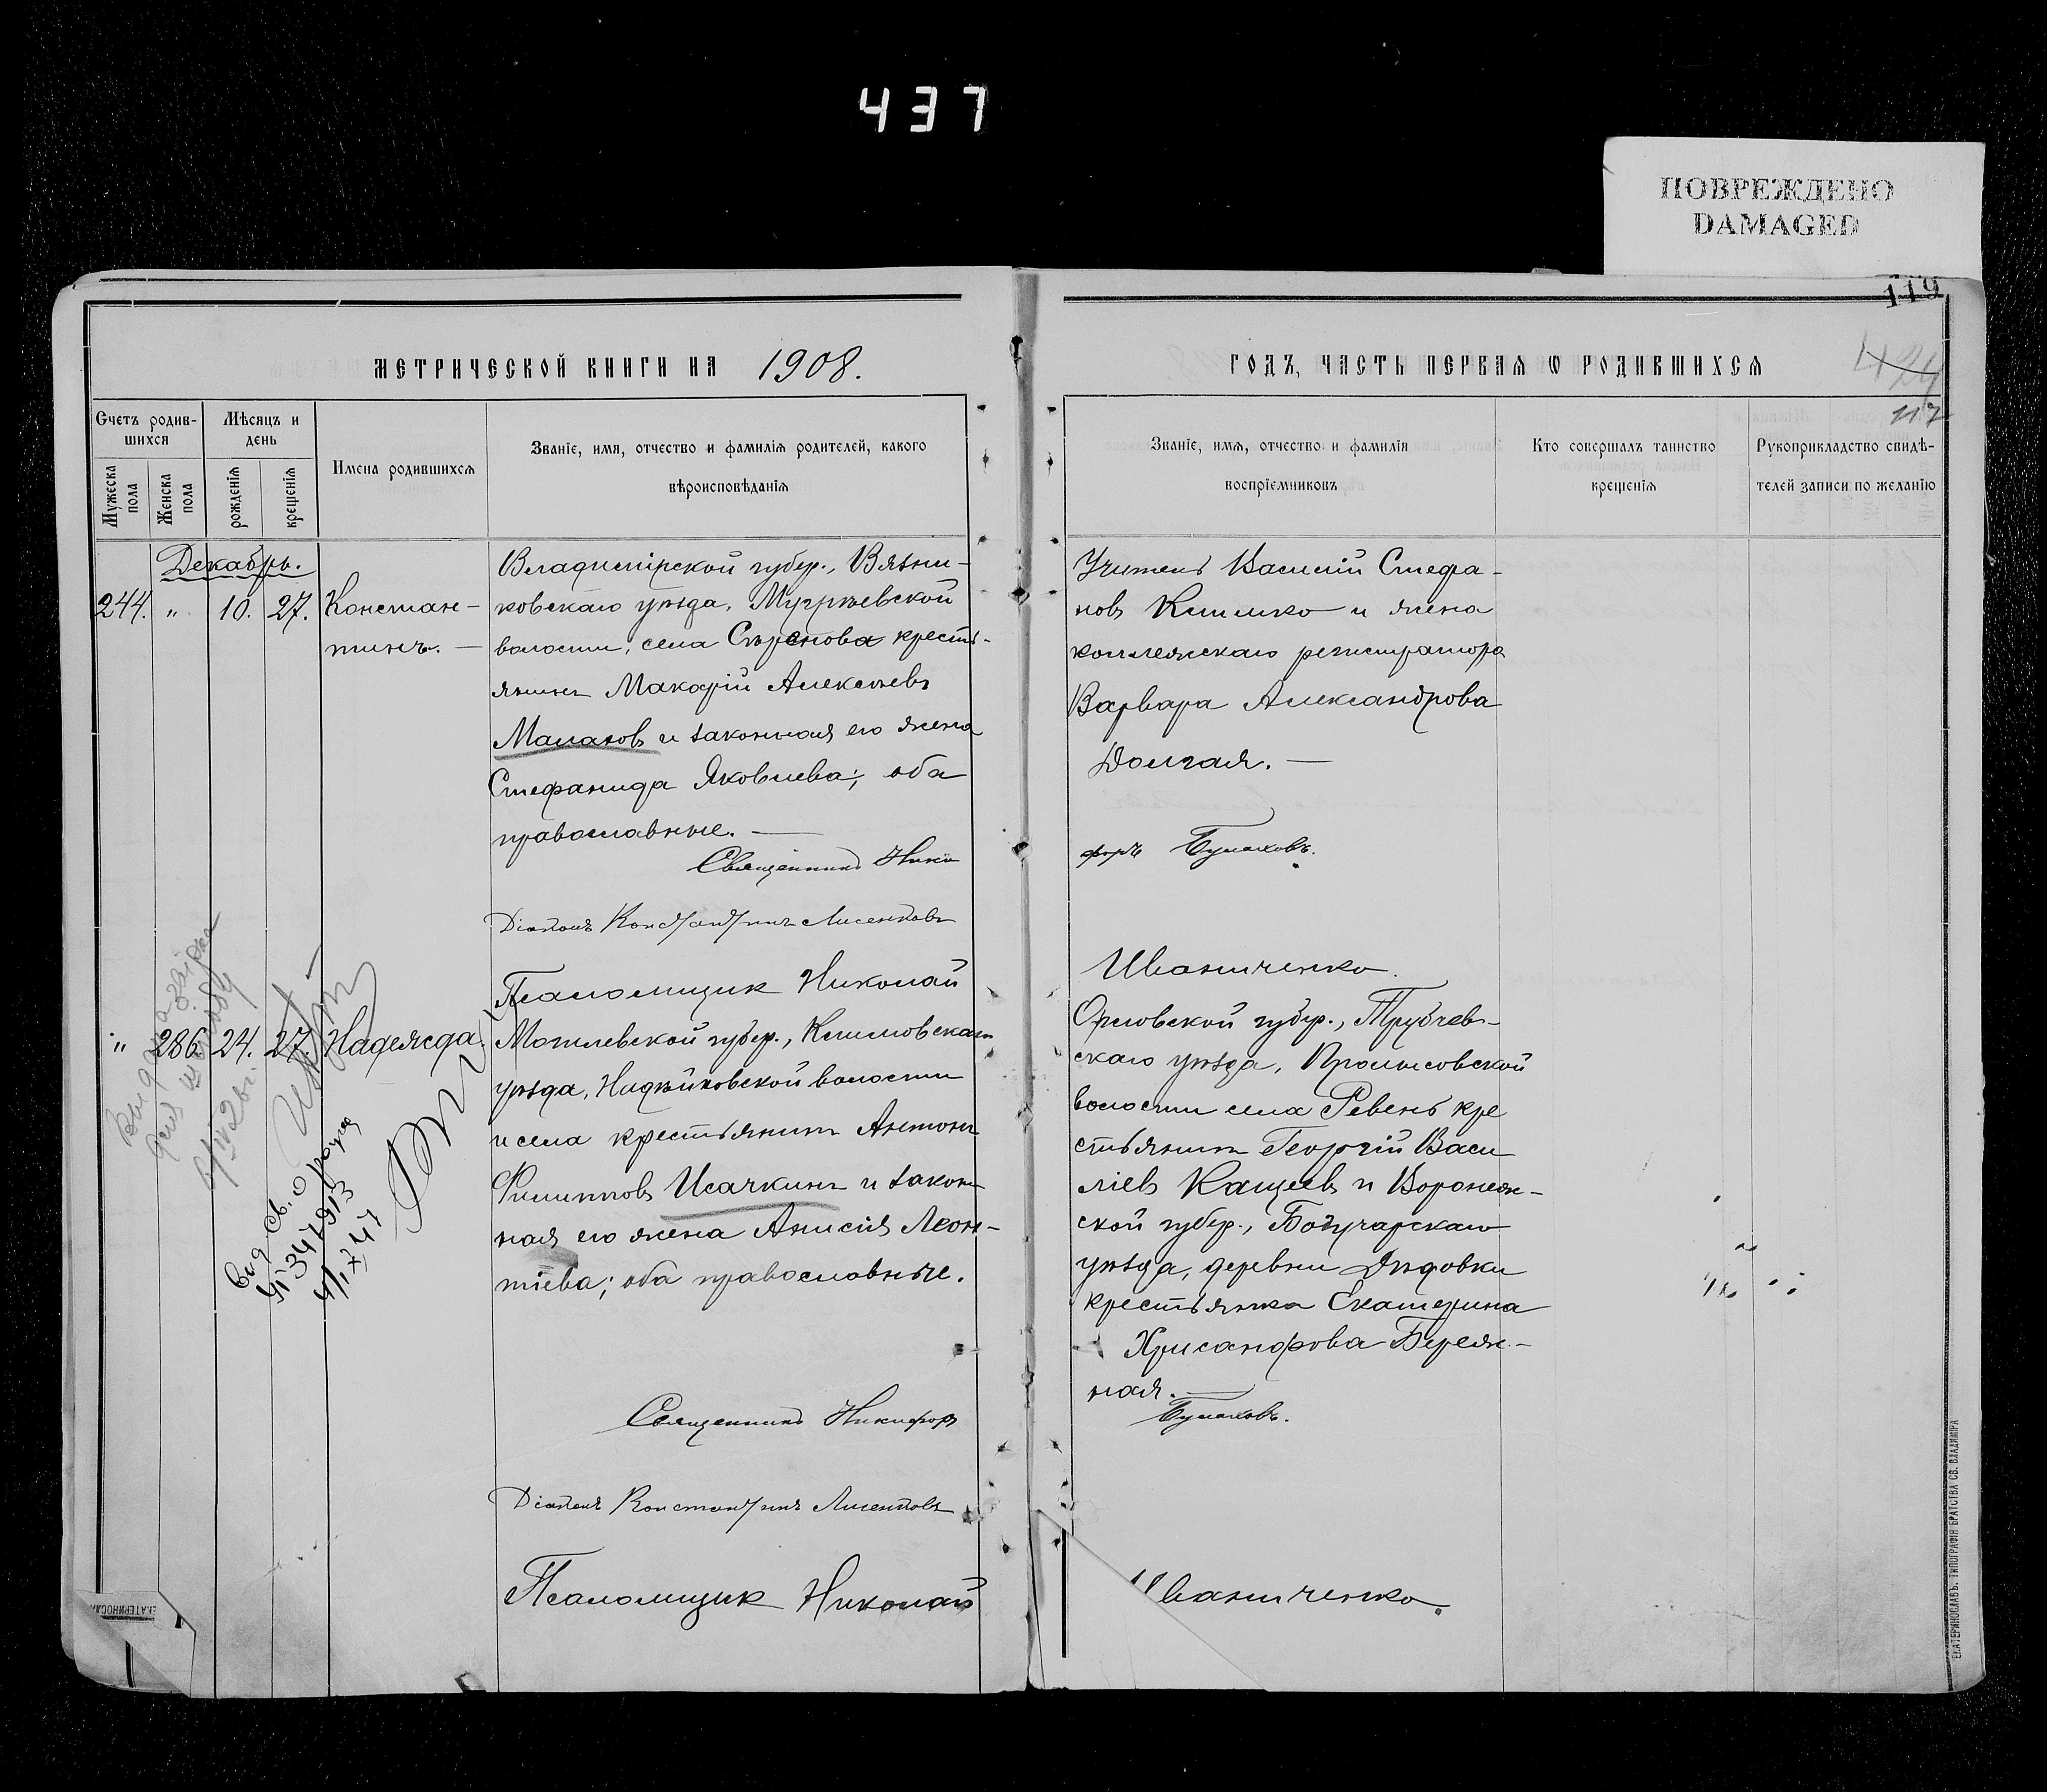 437
ПОВРЕЖДЕНО
DAMAGED
119
МЕТРИЧЕСКОЙ КНИГИ НА 1908.
ГОДЪ, ЧАСТЬ ПЕРВАЯ Ѡ РОДИВШИХСЯ
424
117
Счетъ родив-
шихся
Мѣсяцъ и
день
Мужеска
пола
Женска
пола
рожденія
крещенія
Имена родившихся
Званіе, имя, отчество и фамилія родителей, какого
вѣроисповѣданія
Званіе, имя, отчество и фамилія
воспріемниковъ
Кто совершалъ таинство
крещенія
Рукоприкладство свидѣ-
телей записи по желанію
Декабрь.
244. " 10. 27. Констан-
тинъ. —
Владимірской губер., Вязни-
ковскаго уѣзда, Мугрѣевской
волости, села кресть-
янинъ Макарій Алексѣевъ
Малаховъ и законная его жена
Стефанида Яковлева; оба
православные. —
Священникъ Ники
Діаконъ Константинъ Лисенковъ
Псаломщик Николай
Учитель Василій Стефа-
новъ Климко и жена
коллежскаго регистратора
Варвара Александрова
Долгая. —
форъ Булаховъ.
Иваниченко.
" 286 24. 27. Надежда.
Могилевской губер., Климовскаго
уѣзда, волости
и села крестьянинъ Антонъ
Филипповъ Исачкинъ и закон
ная его жена Анисія Леон-
тіева; оба православные.
Священникъ Никифоръ
Діаконъ Константинъ Лисенковъ
Псаломщик Николай
Орловской губер., Трубчев-
скаго уѣзда,
волости села Ревенъ кре
стьянинъ Георгій Васи
ліевъ Кащеевъ и Воронеж-
ской губер., Богучарскаго
уѣзда, деревни Дѣдовки
крестьянка Екатерина
Хрисанфова Береж-
ная. —
Булаховъ.
Иваниченко.
ЕКАТЕРИНОСЛАВЪ. ТИПОГРАФІЯ БРАТСТВА СВ. ВЛАДИМІРА